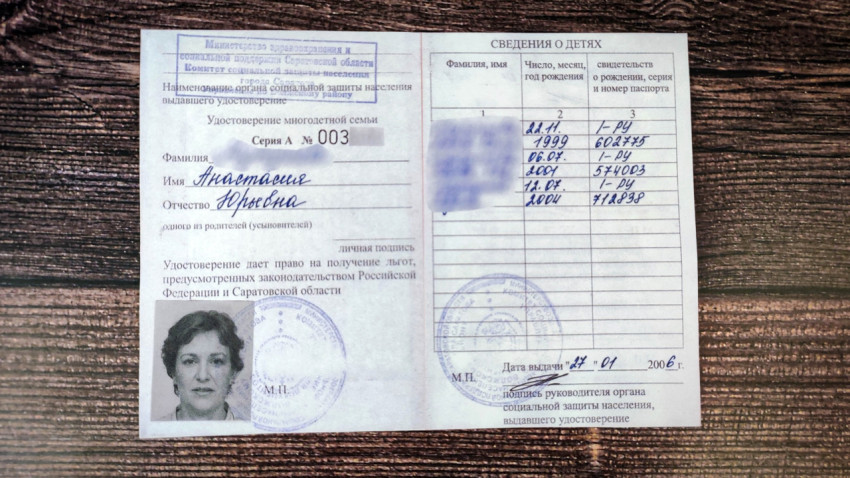 Министерство здравоохранения и
социальной поддержки Саратовской области
Комитет социальной защиты населения
города Саратова
району
Наименование органа социальной защиты населения
выдавшего удостоверение
Удостоверение многодетной семьи
Серия А № 003
Фамилия
Имя Анастасия
Отчество Юрьевна
одного из родителей (усыновителей)
личная подпись
Удостоверение дает право на получение льгот,
предусмотренных законодательством Российской
Федерации и Саратовской области
М.П.
СВЕДЕНИЯ О ДЕТЯХ
Фамилия, имя
Число, месяц,
год рождения
свидетельств
о рождении, серия
и номер паспорта
1 2 3
22.11. I-РУ
1999 602775
06.07. I-РУ
2001 574003
12.07. I-РУ
2004 712838
Дата выдачи "27" 01 2006 г.
М.П.
подпись руководителя органа
социальной защиты населения,
выдавшего удостоверение